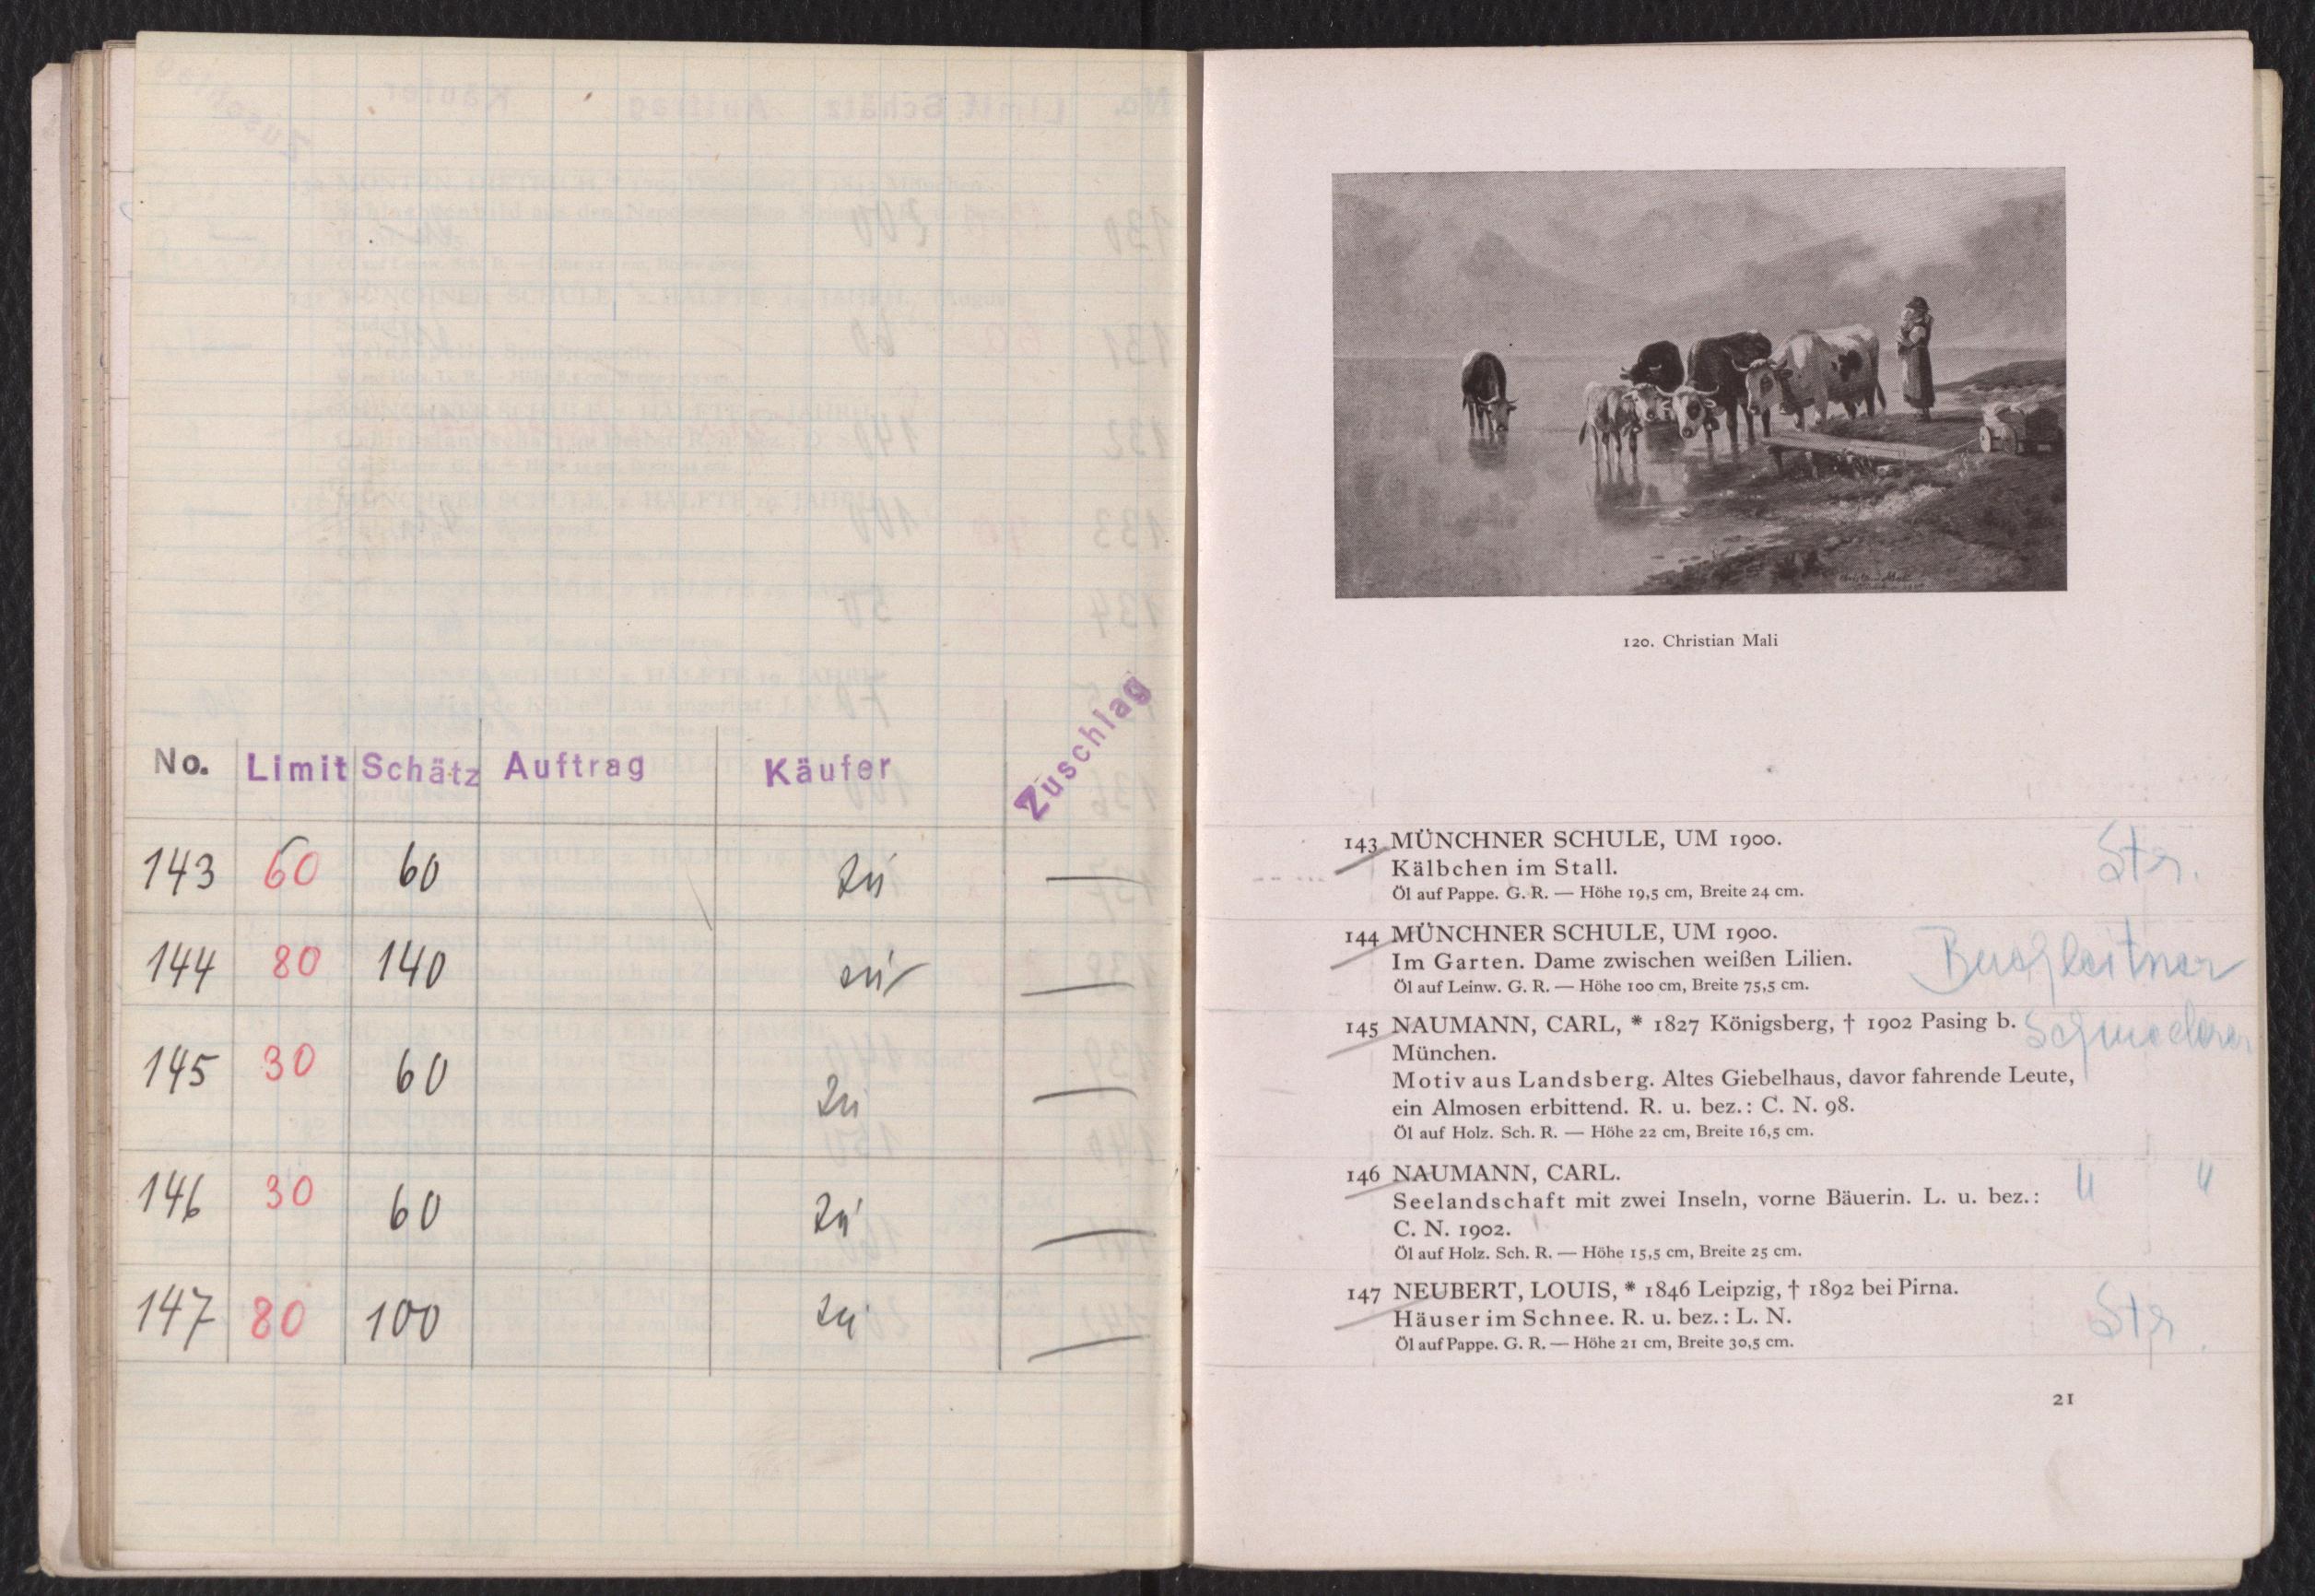 No. Limit Schätz Auftrag Käufer Zuschlag
143 60 60 zu —
144 80 140 zu —
145 30 60 zu —
146 30 60 zu —
147 80 100 zu —
120. Christian Mali
143 MÜNCHNER SCHULE, UM 1900. Str.
Kälbchen im Stall.
Öl auf Pappe. G. R. — Höhe 19,5 cm, Breite 24 cm.
144 MÜNCHNER SCHULE, UM 1900.
Im Garten. Dame zwischen weißen Lilien.
Öl auf Leinw. G. R. — Höhe 100 cm, Breite 75,5 cm.
145 NAUMANN, CARL, * 1827 Königsberg, † 1902 Pasing b.
München.
Motiv aus Landsberg. Altes Giebelhaus, davor fahrende Leute,
ein Almosen erbittend. R. u. bez.: C. N. 98.
Öl auf Holz. Sch. R. — Höhe 22 cm, Breite 16,5 cm.
146 NAUMANN, CARL. " "
Seelandschaft mit zwei Inseln, vorne Bäuerin. L. u. bez.:
C. N. 1902.
Öl auf Holz. Sch. R. — Höhe 15,5 cm, Breite 25 cm.
147 NEUBERT, LOUIS, * 1846 Leipzig, † 1892 bei Pirna. Str
Häuser im Schnee. R. u. bez.: L. N.
Öl auf Pappe. G. R. — Höhe 21 cm, Breite 30,5 cm.
21